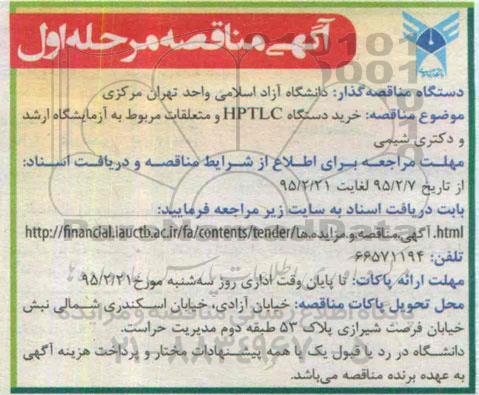 آگهی مناقصه مرحله اول
دستگاه مناقصه‌گذار: دانشگاه آزاد اسلامی واحد تهران مرکزی
موضوع مناقصه: خرید دستگاه HPTLC و متعلقات مربوط به آزمایشگاه ارشد
و دکتری شیمی
مهلت مراجعه برای اطلاع از شرایط مناقصه و دریافت اسناد:
از تاریخ ۹۵/۲/۷ لغایت ۹۵/۲/۲۱
بابت دریافت اسناد به سایت زیر مراجعه فرمایید:
http://financial.iauctb.ac.ir/fa/contents/tender/آگهی.مناقصه.و.مزایده.ها.html
تلفن: ۶۶۵۷۱۱۹۴
مهلت ارائه پاکات: تا پایان وقت اداری روز سه‌شنبه مورخ ۹۵/۲/۲۱
محل تحویل پاکات مناقصه: خیابان آزادی، خیابان اسکندری شمالی نبش
خیابان فرصت شیرازی پلاک ۵۳ طبقه دوم مدیریت حراست.
دانشگاه در رد یا قبول یک یا همه پیشنهادات مختار و پرداخت هزینه آگهی
به عهده برنده مناقصه می‌باشد.